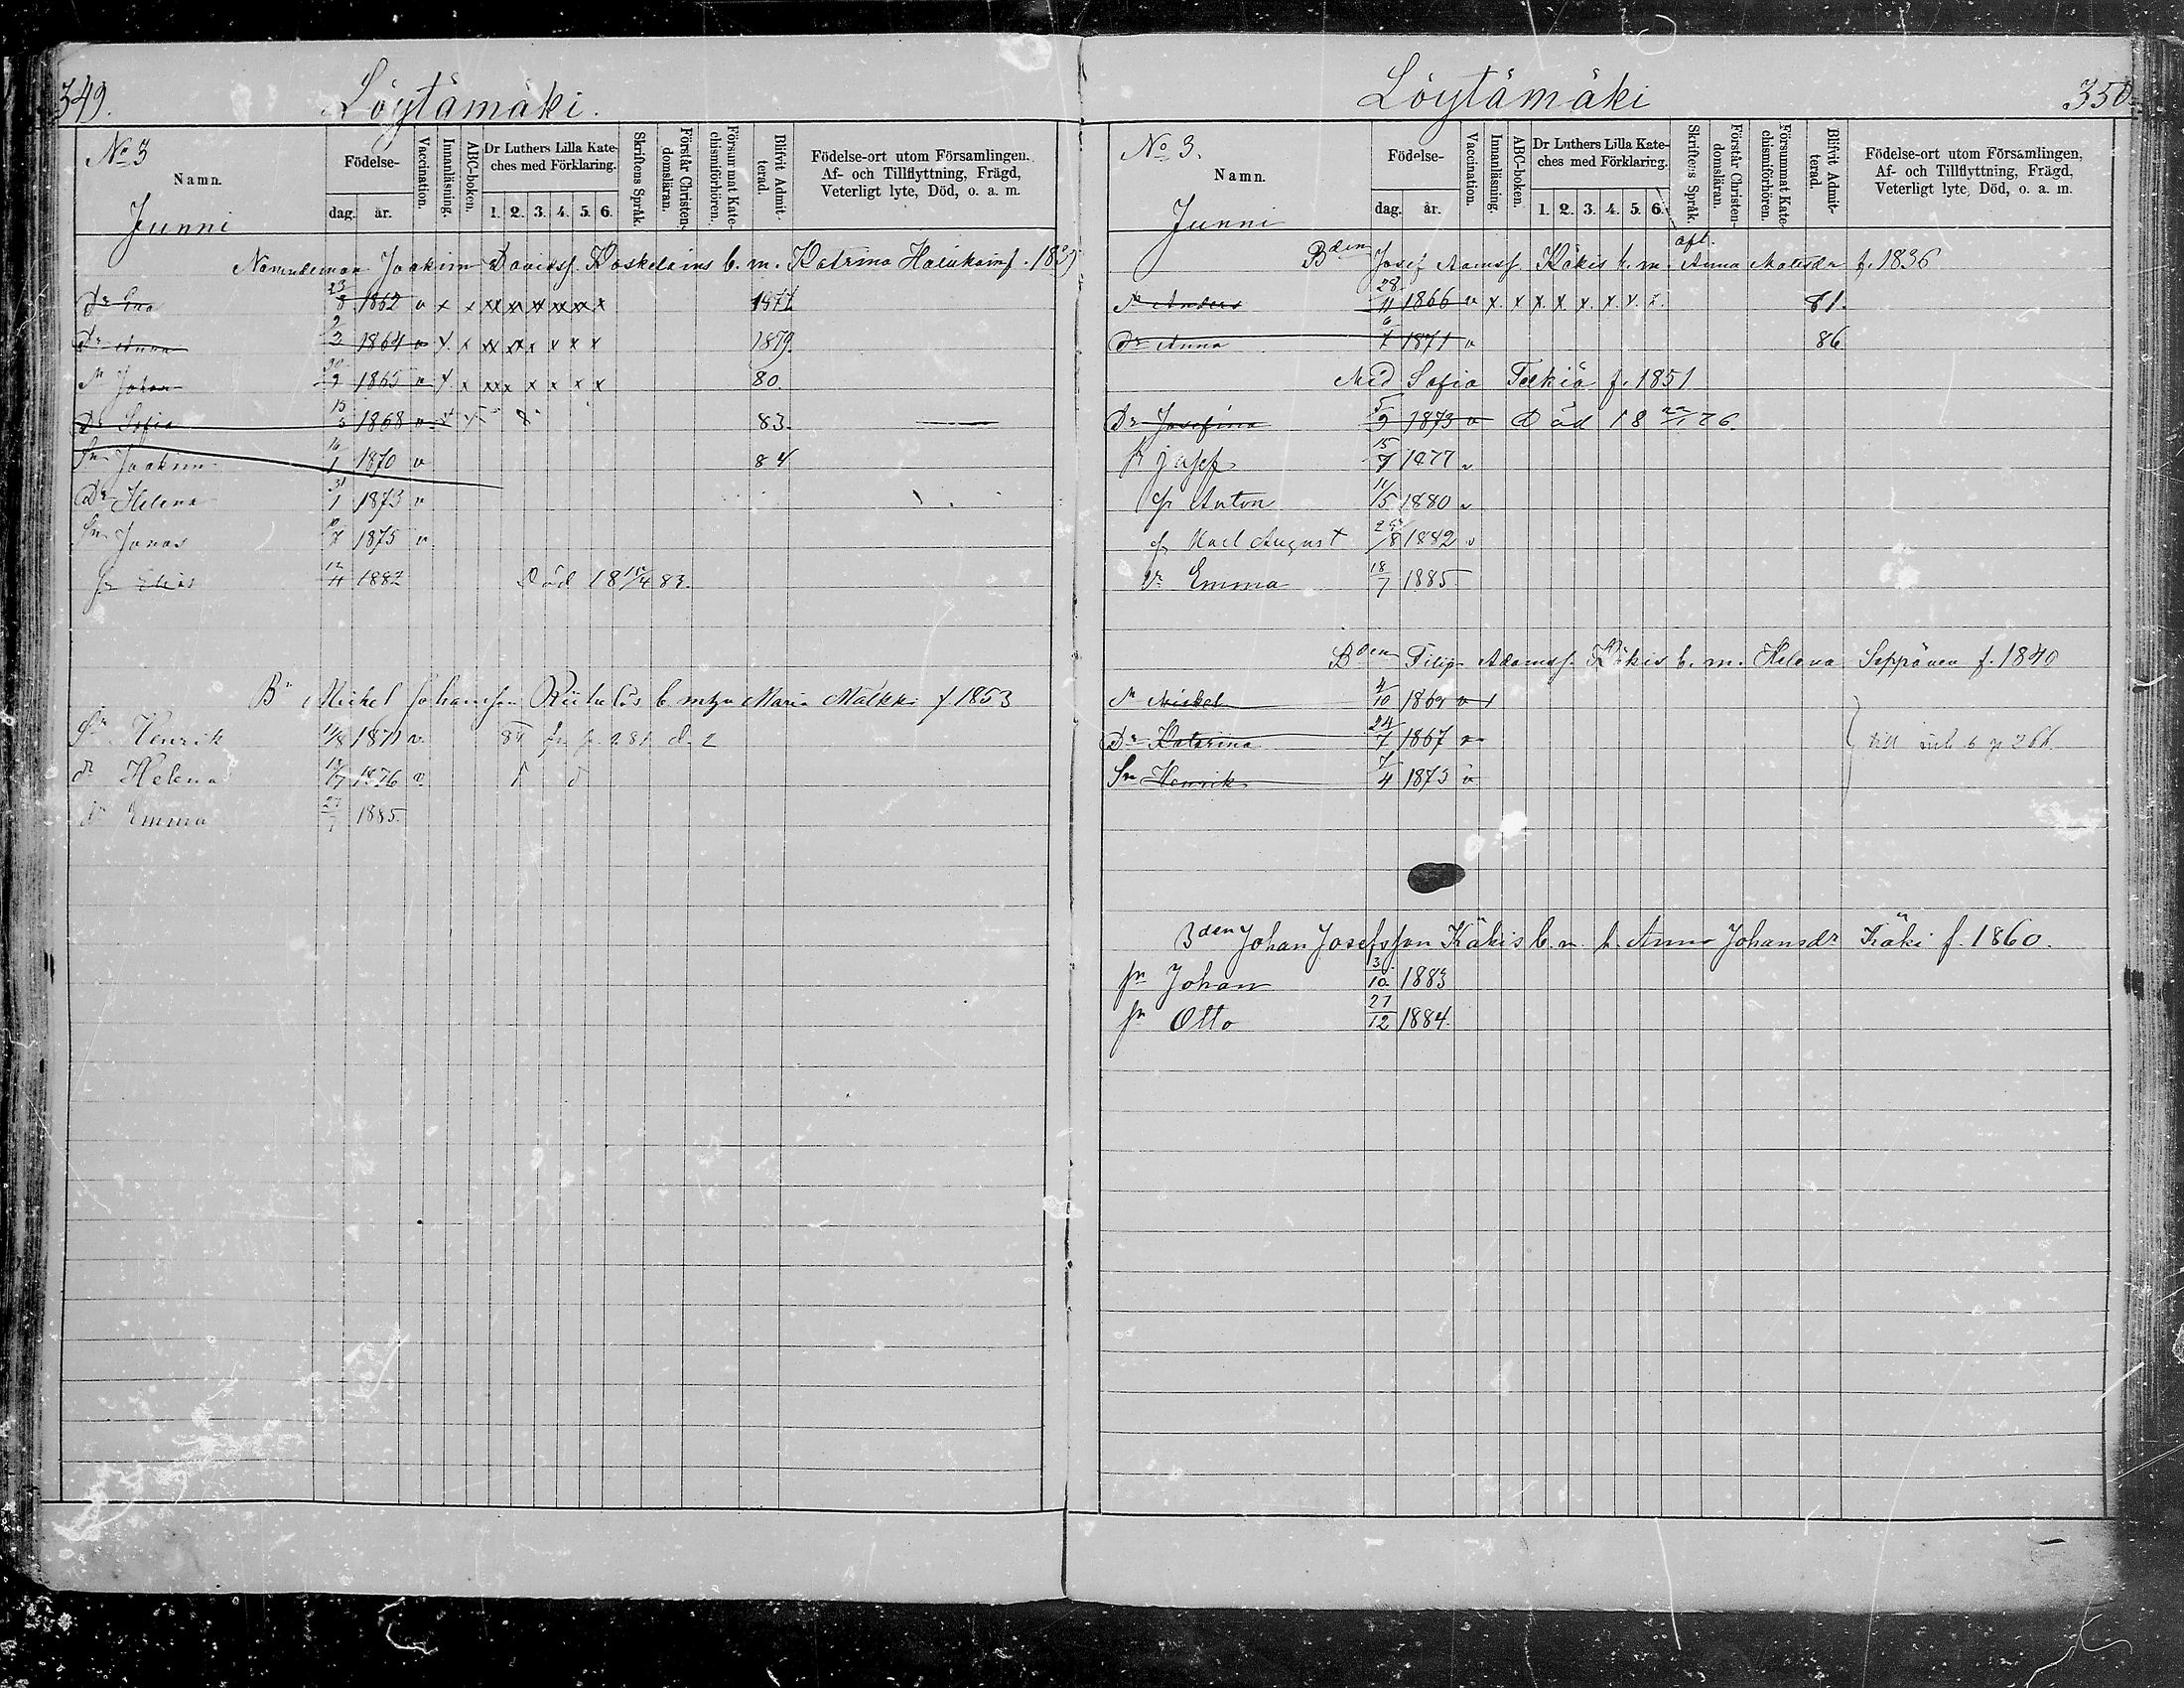 349.
Löytämäki.
No 3
Namn.
Junni
Födelse-
dag. år.
Vaccination.
Innanläsning.
ABC-boken.
Dr Luthers Lilla Kate-
ches med Förklaring.
1. 2. 3. 4. 5. 6.
Skriftens Språk.
Förstår Christen-
domsläran.
Försummat Kate-
chismiförhören.
Blifvit Admit-
terad.
Födelse-ort utom Församlingen.
Af- och Tillflyttning, Frägd,
Veterligt lyte, Död, o. a. m.
Nämndeman Joakim Davidss. Koskelains b. m. Katrina f. 1839
Dr Eva 23/8 1862 v x x xx xx xx xx xx x 1877
Dr Anna 2/2 1864 v x x xx xx x x x x 1879.
Sn Johan 30/9 1865 v x x xx x x x x x 80.
Dr Sofia 15/5 1868 v x x 83.
Sn Joakim 16/1 1870 v 84
Dr Helena 31/1 1873 v
Sn Jonas 10/7 1875 v
Sn Elias 12/11 1882 Död 18 15/4 83.
Bn Mickel Johansson b. m. Maria Malkki f 1853
Sn Henrik 11/8 1871 v. 85 fr. p. 281 d. 2
dr Helena 12/7 1876 v.
dr Emma 27/1 1885.
Löytämäki
350.
No 3.
Namn.
Junni
Födelse-
dag. år.
Vaccination.
Innanläsning.
ABC-boken.
Dr Luthers Lilla Kate-
ches med Förklaring.
1. 2. 3. 4. 5. 6.
Skriftens Språk.
Förstår Christen-
domsläran.
Försummat Kate-
chismiförhören.
Blifvit Admit-
terad.
Födelse-ort utom Församlingen,
Af- och Tillflyttning, Frägd,
Veterligt lyte, Död, o. a. m.
afl.
Bden Josef Adamss. Käkis b. m. Anna Matsdr f. 1836
Sn Anders 28/11 1866 v x. x x x x. x x. x. 81.
Dr Anna 6/7 1871 v 86
Med Sofia Teckiä f. 1851
Dr Josefina 5/9 1873 v Död 18 22/1 76.
Sn Josef 15/7 1877 v
Sn Anton 11/5 1880 v
Sn Karl August 29/8 1882 v
Dr Emma 18/7 1885.
Bden Filip Adamss. Käkis b. m. Helena Seppänen f. 1840
Sn Mickel 4/10 1869 v 1
Dr Katarina 24/7 1867 v
Sn Henrik 7/4 1873 v
till
Bden Johan Josefsson Käkis b. m. h. Anna Johansdr Käki f. 1860.
Sn Johan 3/10 1883
Sn Otto 27/12 1884.